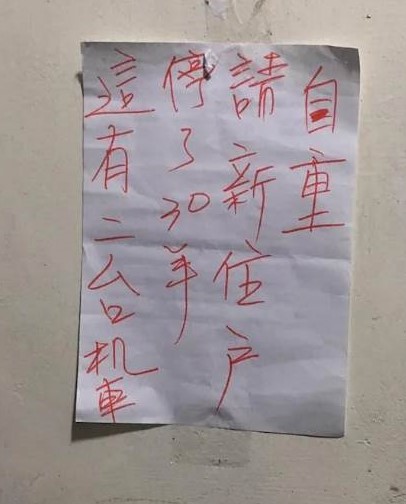 這有二台机車
停了30年
請新住户
自重